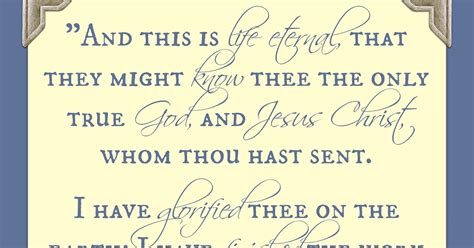 "And this is life eternal, that
they might know thee the only
true God, and Jesus Christ,
whom thou hast sent.
I have glorified thee on the
earth: I have finished the work